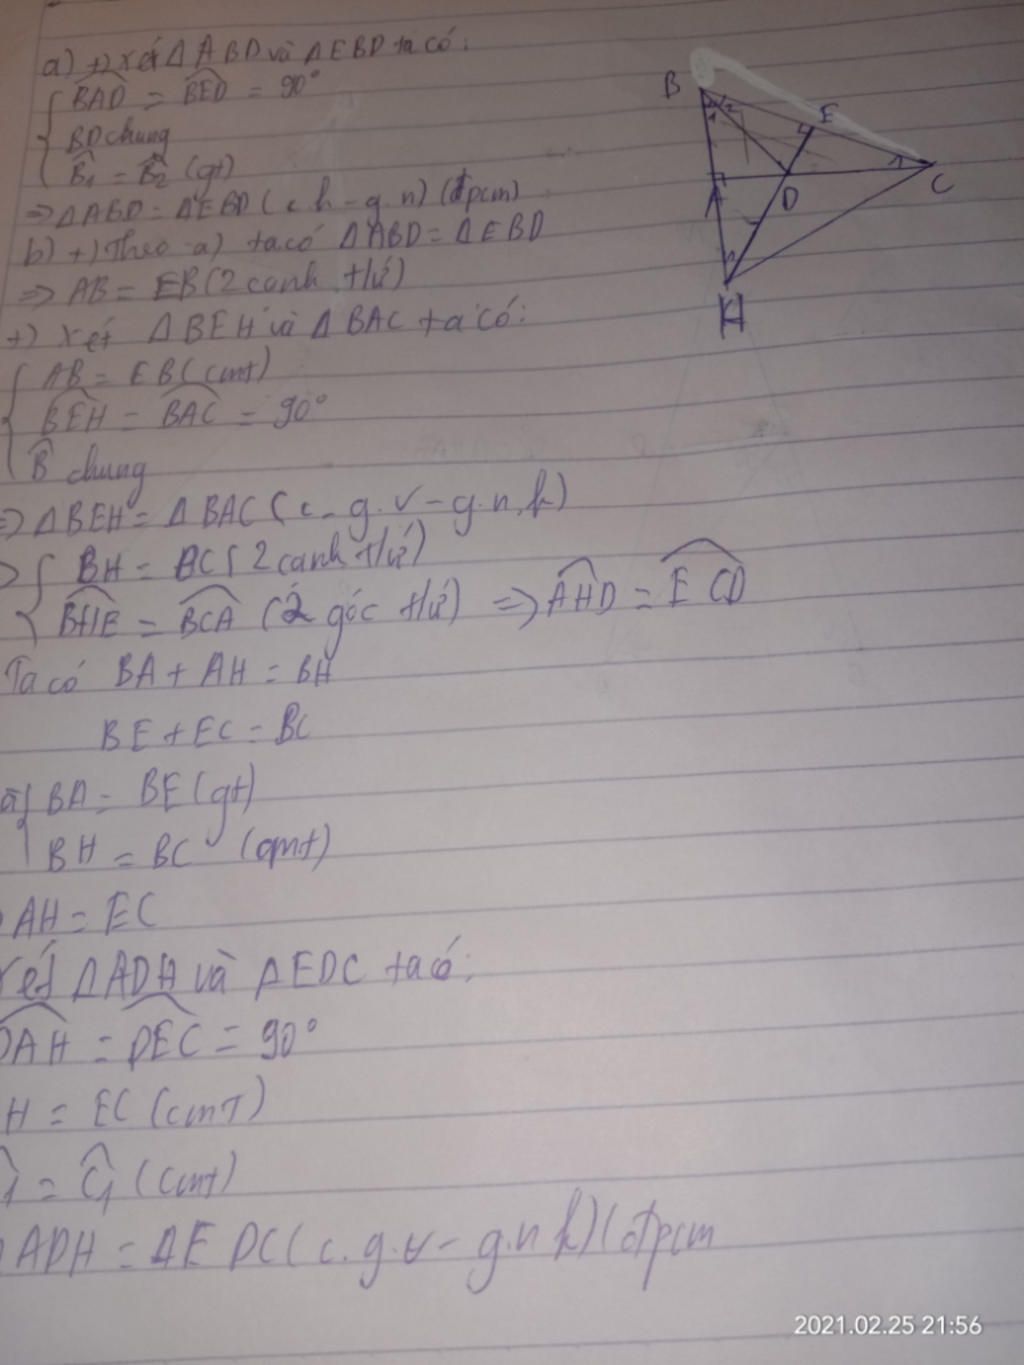 a) +) xét ΔABD và ΔEBD ta có:
BAD = BED = 90°
BD chung
B1 = B2 (gt)
=> ΔABD = ΔEBD (c.h - g.n) (đpcm)
b) +) Theo a) ta có ΔABD = ΔEBD
=> AB = EB (2 canh t/ứ)
+) Xét ΔBEH và ΔBAC ta có:
AB = EB (cmt)
BEH = BAC = 90°
B chung
=> ΔBEH = ΔBAC (c.g.v - g.n.k)
BH = BC (2 canh t/ứ)
BHE = BCA (2 góc t/ứ) => AHD = ECD
Ta có BA + AH = BH
BE + EC = BC
BA = BE (gt)
BH = BC (cmt)
AH = EC
xét ΔADH và ΔEDC ta có:
DAH = DEC = 90°
H = EC (cmt)
1 = C1 (cmt)
ADH = ΔEDC (c.g.v - g.n k) (đpcm
B
1
2
E
1
C
A
D
H
2021.02.25 21:56